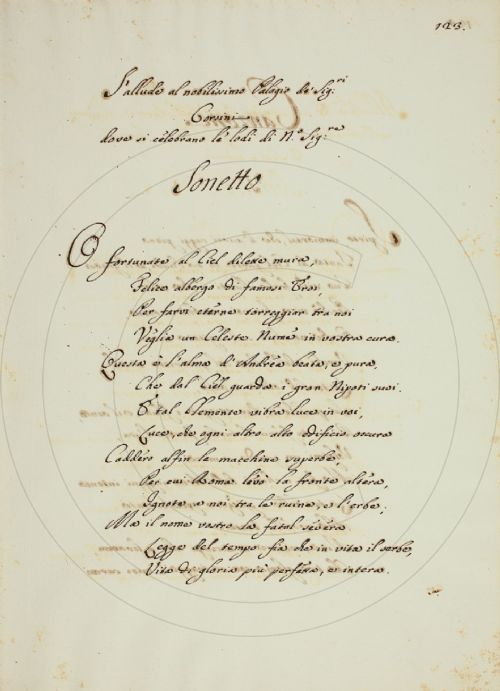 123.
S'allude al nobilissimo Palagio de' Sig:ri
Corsini
dove si celebrano le lodi di N.o Sig:re
Sonetto
O fortunate al Ciel dilette mura,
Felice albergo di famosi Eroi,
Per farvi eterne torreggiar tra noi
Veglia un Celeste Nume in vostra cura.
Questa è l'alma d'Andrea beata, e pura,
Che dal Ciel guarda i gran Nipoti suoi.
E tal Clemente vibra luce in voi,
Luce, che ogni altro alto edificio oscura
Caddero alfin le macchine superbe,
Per cui Roma levò la fronte altera,
Ignote a noi tra le ruine, e l'erbe;
Ma il nome vostro la fatal severa
Legge del tempo fia che in vita il serbe,
Vita di gloria più perfetta, e intera.